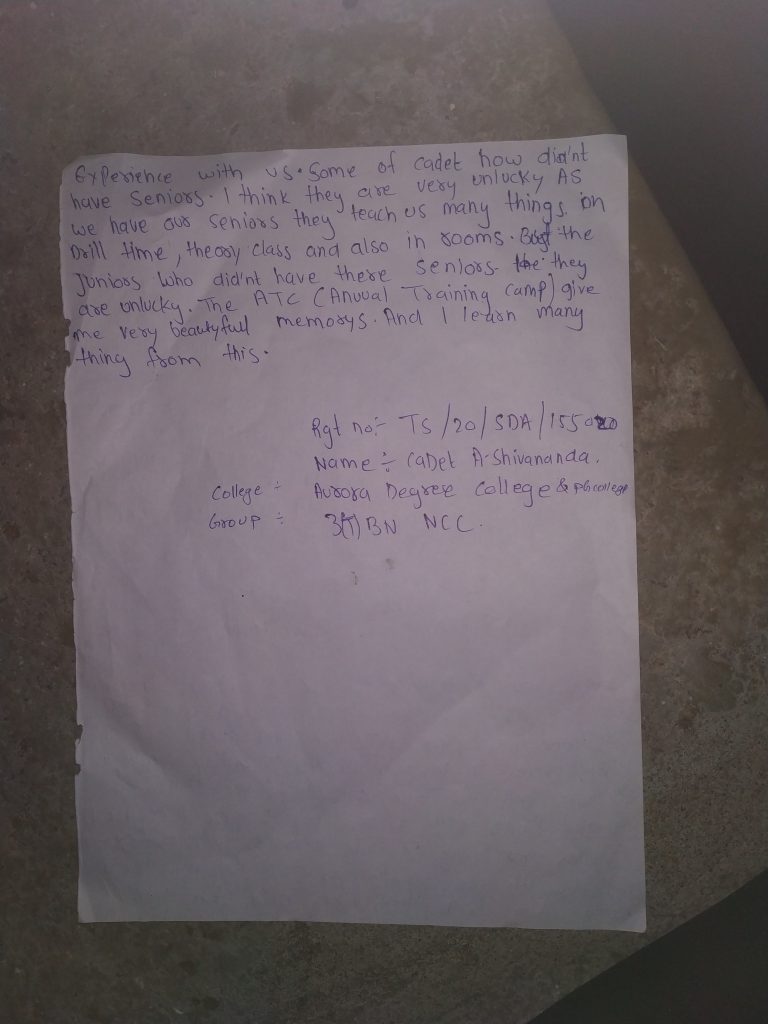 Experience with us. Some of cadet how didn't
have Seniors. I think they are very unlucky AS
we have our seniors they teach us many things. on
Drill time, theory class and also in rooms. But the
Juniors who did'nt have there seniors. the they
are unlucky. The ATC (Anuual Training camp) give
me very beautyfull memorys. And I learn many
thing from this.
Rgt no:- TS/20/SDA/1550
Name ÷ CaDet A-Shivananda.
College ÷ Aurora Degree College & PG college
Group ÷ 3(T) BN NCC.